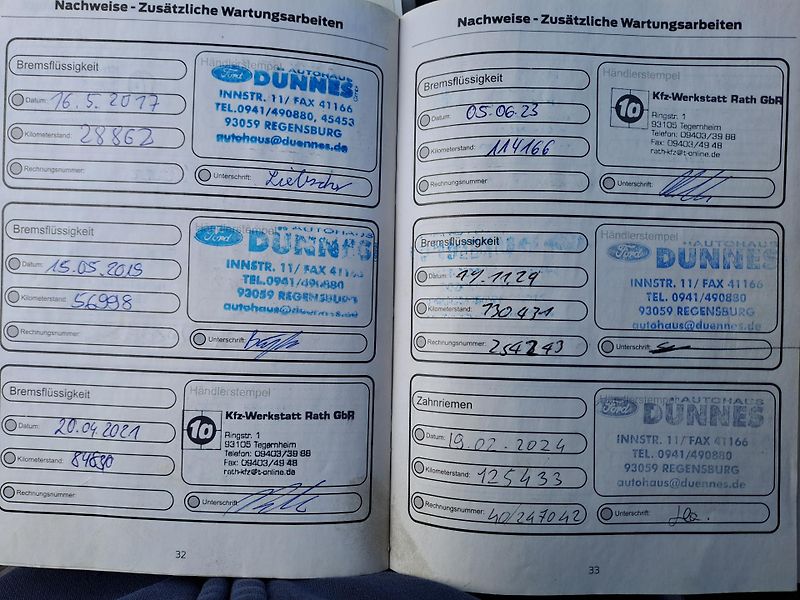 Nachweise - Zusätzliche Wartungsarbeiten
Bremsflüssigkeit
Datum: 16.5.2017
Kilometerstand: 28862
Rechnungsnummer:
Händlerstempel
Ford AUTOHAUS
DÜNNES
INNSTR. 11/ FAX 41166
TEL.0941/490880, 45453
93059 REGENSBURG
autohaus@duennes.de
Unterschrift:
Bremsflüssigkeit
Datum: 15.05.2019
Kilometerstand: 56998
Rechnungsnummer:
Ford AUTOHAUS
DÜNNES
INNSTR. 11/ FAX 41166
TEL. 0941/490880
93059 REGENSBURG
autohaus@duennes.de
Unterschrift:
Bremsflüssigkeit
Datum: 20.04.2021
Kilometerstand: 84630
Rechnungsnummer:
Händlerstempel
10 Kfz-Werkstatt Rath GbR
Ringstr. 1
93105 Tegernheim
Telefon: 09403/39 88
Fax: 09403/49 48
rath-kfz@t-online.de
Unterschrift:
32
Nachweise - Zusätzliche Wartungsarbeiten
Bremsflüssigkeit
Datum: 05.06.23
Kilometerstand: 114166
Rechnungsnummer:
Händlerstempel
10 Kfz-Werkstatt Rath GbR
Ringstr. 1
93105 Tegernheim
Telefon: 09403/39 88
Fax: 09403/49 48
rath-kfz@t-online.de
Unterschrift:
Bremsflüssigkeit
Datum: 19.11.24
Kilometerstand: 130431
Rechnungsnummer: 254243
Händlerstempel
Ford AUTOHAUS
DÜNNES
INNSTR. 11/ FAX 41166
TEL. 0941/490880
93059 REGENSBURG
autohaus@duennes.de
Unterschrift:
Zahnriemen
Datum: 19.02.2024
Kilometerstand: 125433
Rechnungsnummer: 40/247042
Händlerstempel
Ford AUTOHAUS
DÜNNES
INNSTR. 11/ FAX 41166
TEL. 0941/490880
93059 REGENSBURG
autohaus@duennes.de
Unterschrift:
33